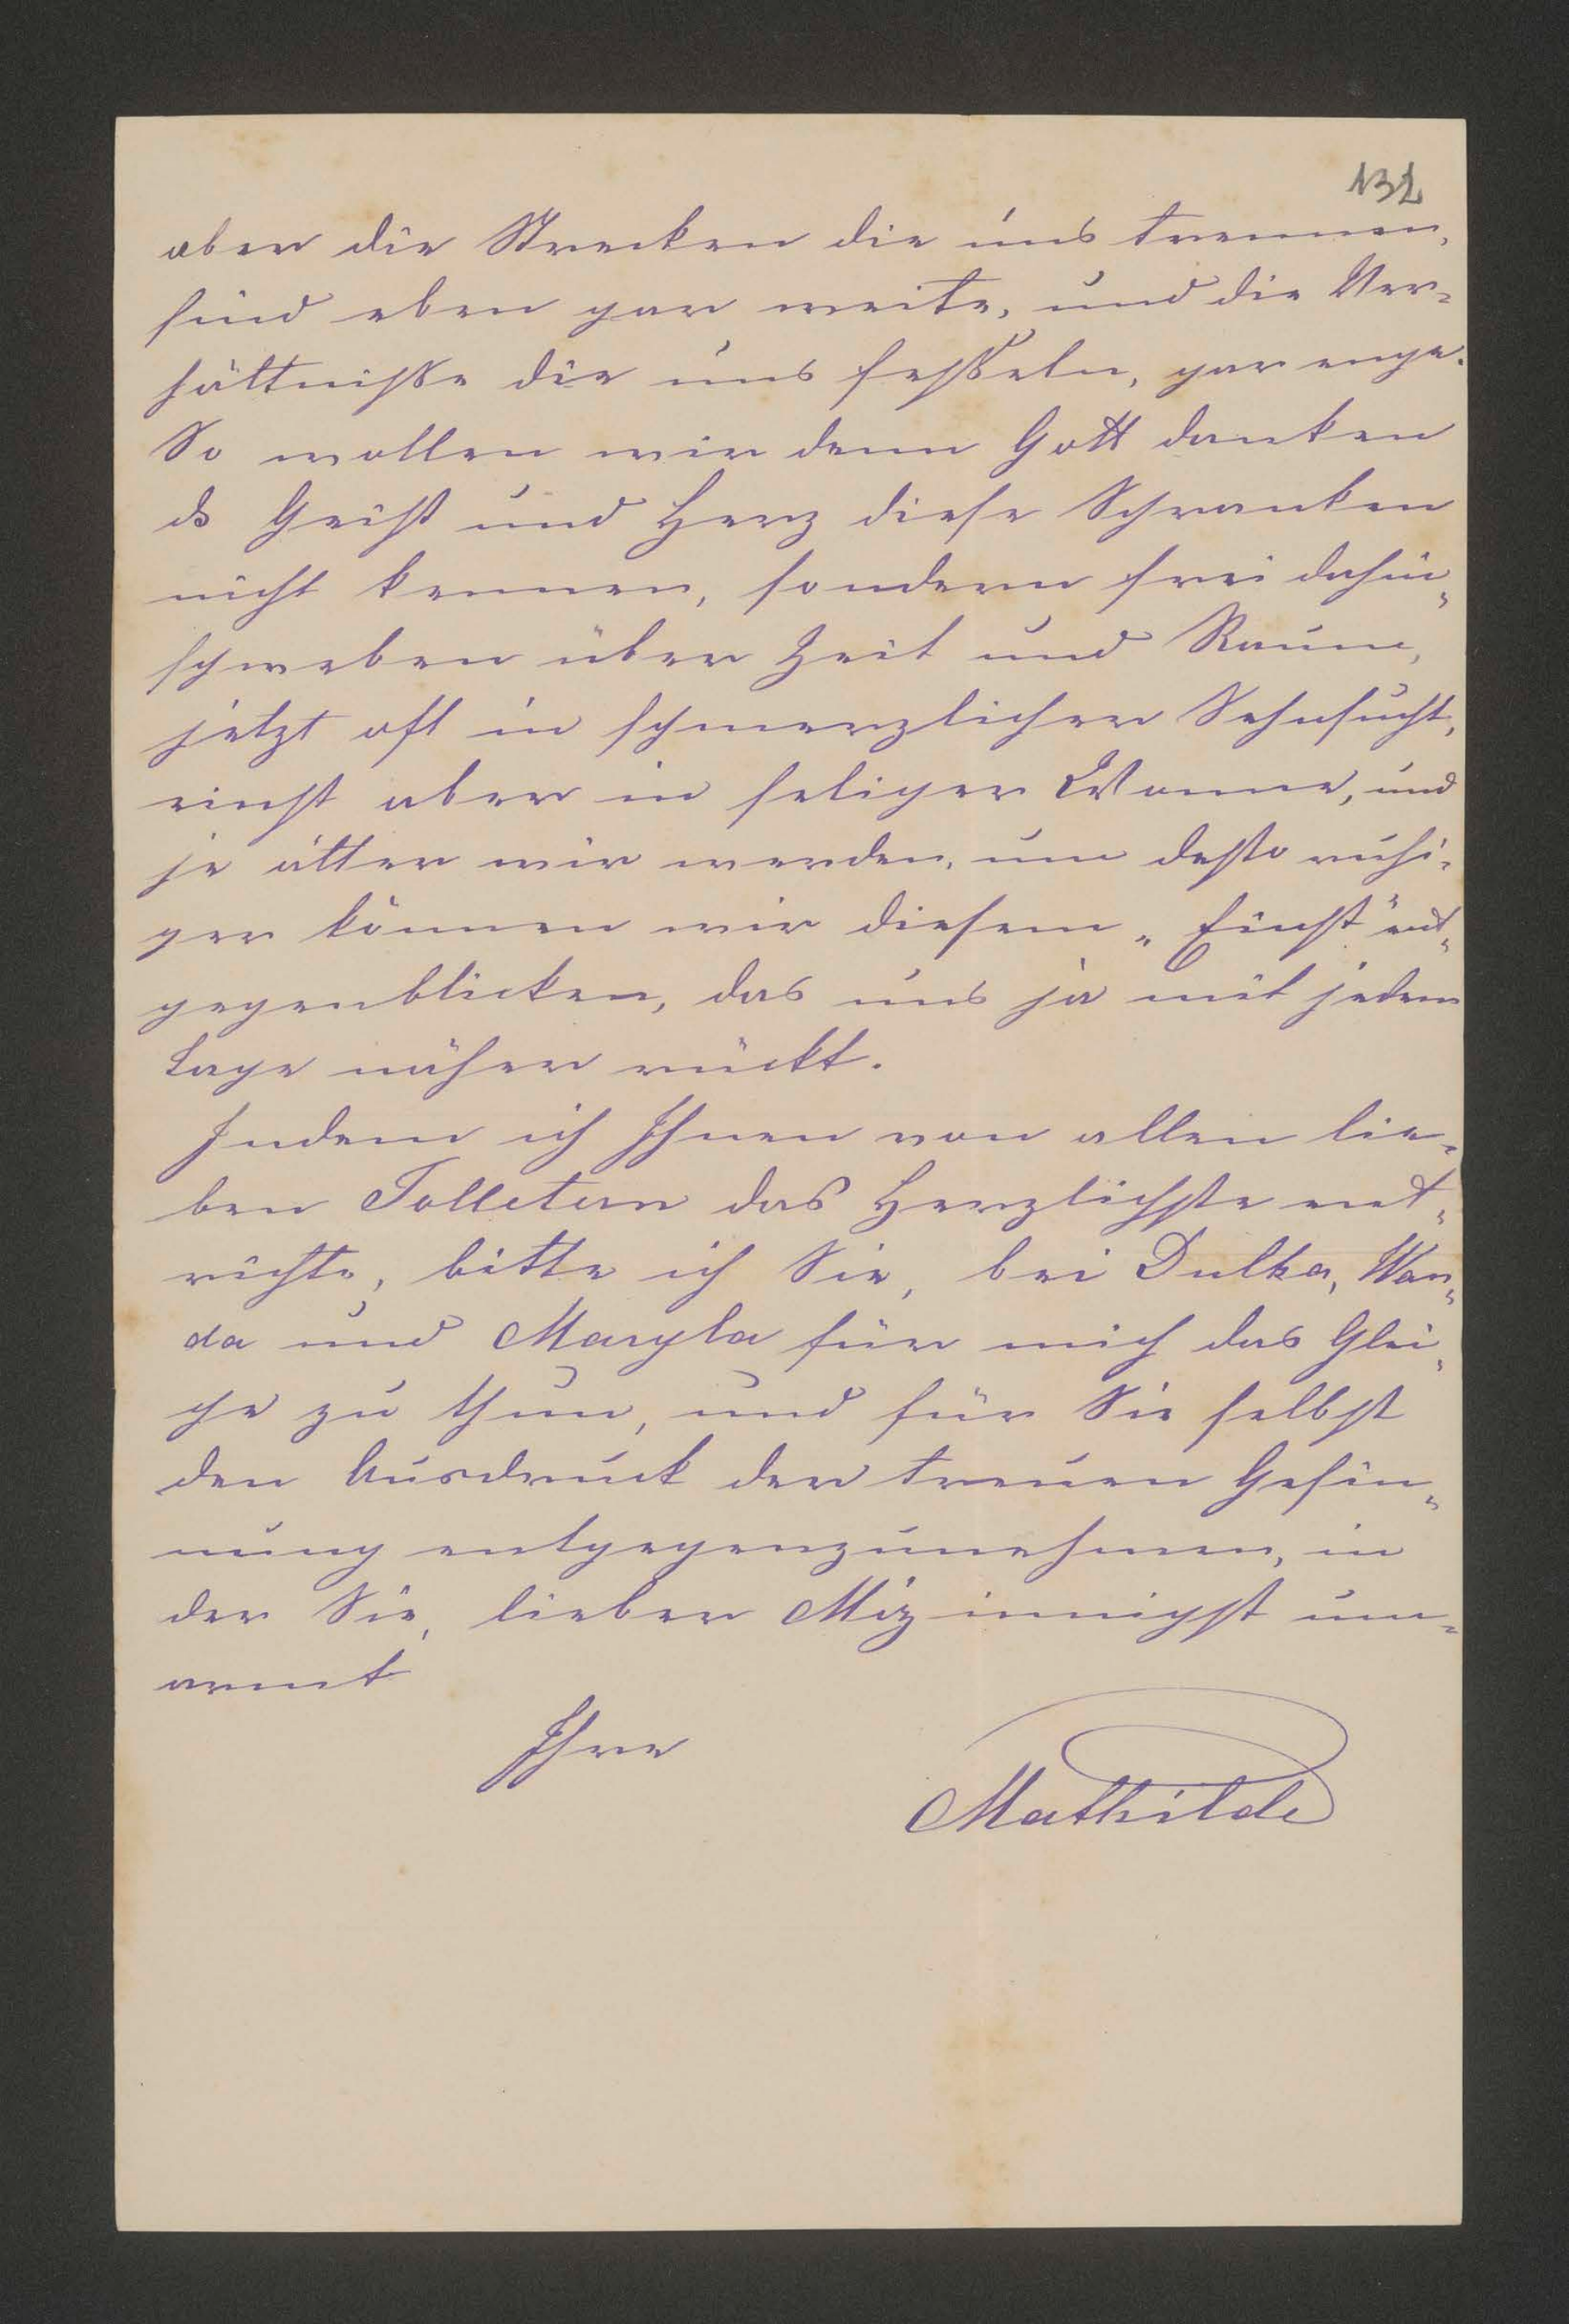 132
aber die Strecken die uns trennen,
sind eben gar weite, und die Ver-
hältniße die uns feßeln, gar enge.
So wollen wir denn Gott danken
ds Geist und Herz diese Schranken
nicht kennen, sondern frei dahin-
schweben über Zeit und Raum,
jetzt oft in schmerzlicher Sehnsucht,
einst aber in seliger Wonne, und
je älter wir werden, um desto ruhi-
ger können wir diesem „Einst" ent-
gegenblicken, das uns ja mit jedem
Tage näher rückt.
Indem ich Ihnen von allen lie-
ben Tolletern das Herzlichste ent-
richte, bitte ich Sie, bei Dulka, Wan-
da und Maryla für mich das Glei-
che zu thun, und für Sie selbst
den Ausdruck der treuen Gesin-
nung entgegenzunehmen, in
der Sie, lieber Miz innigst um-
armt
Ihre
Mathilde